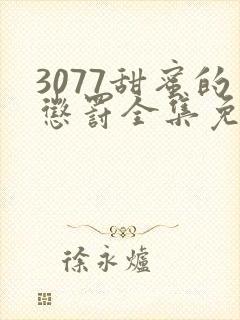 3077甜蜜的
惩罚全集免
徐永爐